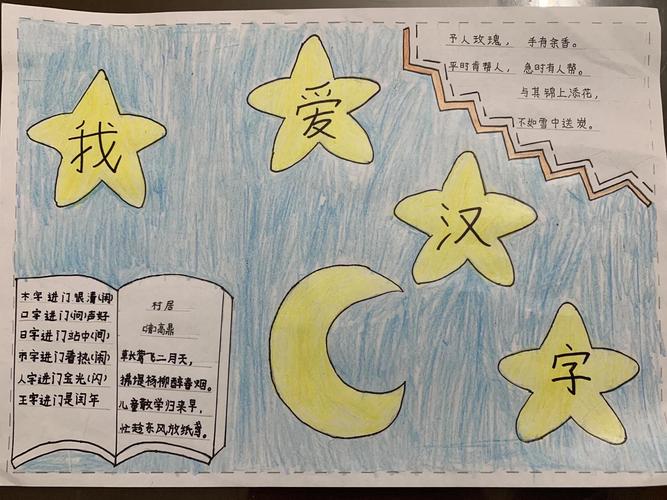 我爱汉字
予人玫瑰，手有余香。
平时肯帮人，急时有人帮。
与其锦上添花，
不如雪中送炭。
木字进门很清(闲)
口字进门(问)声好
日字进门站中(间)
市字进门看热(闹)
人字进门金光(闪)
王字进门是闰年
村居
[清]高鼎
草长莺飞二月天，
拂堤杨柳醉春烟。
儿童散学归来早，
忙趁东风放纸鸢。